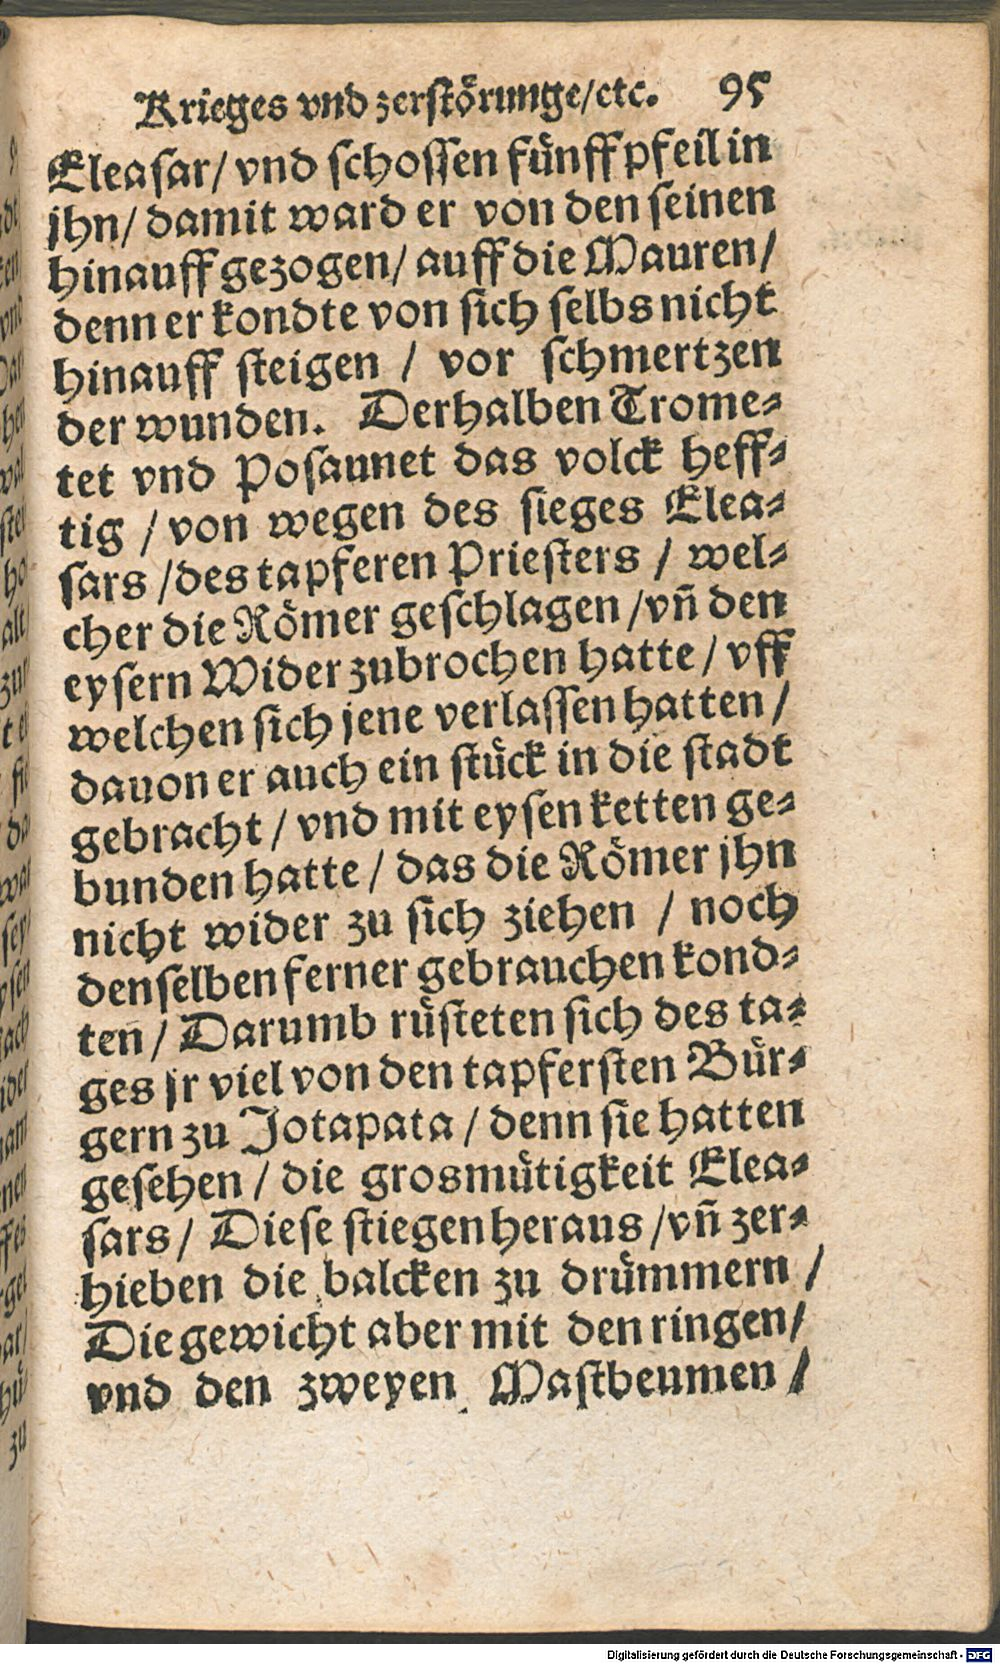 Krieges vnd zerstörunge/etc. 95
Eleasar/ vnd schossen fünff pfeil in
jhn/ damit ward er von den seinen
hinauff gezogen/ auff die Mauren/
denn er kondte von sich selbs nicht
hinauff steigen / vor schmertzen
der wunden. Derhalben Trome⸗
tet vnd Posaunet das volck heff⸗
tig / von wegen des sieges Elea⸗
sars /des tapferen Priesters / wel⸗
cher die Römer geschlagen /vñ den
eysern Wider zubrochen hatte / vff
welchen sich jene verlassen hatten /
dauon er auch ein stück in die stadt
gebracht / vnd mit eysen ketten ge⸗
bunden hatte / das die Römer jhn
nicht wider zu sich ziehen / noch
denselben ferner gebrauchen kond⸗
ten / Darumb rüsteten sich des ta⸗
ges jr viel von den tapfersten Bür⸗
gern zu Jotapata / denn sie hatten
gesehen / die grosmütigkeit Elea⸗
sars / Diese stiegen heraus /vñ zer⸗
hieben die balcken zu drümmern /
Die gewicht aber mit den ringen/
vnd den zweyen Mastbeumen /
Digitalisierung gefördert durch die Deutsche Forschungsgemeinschaft - DFG